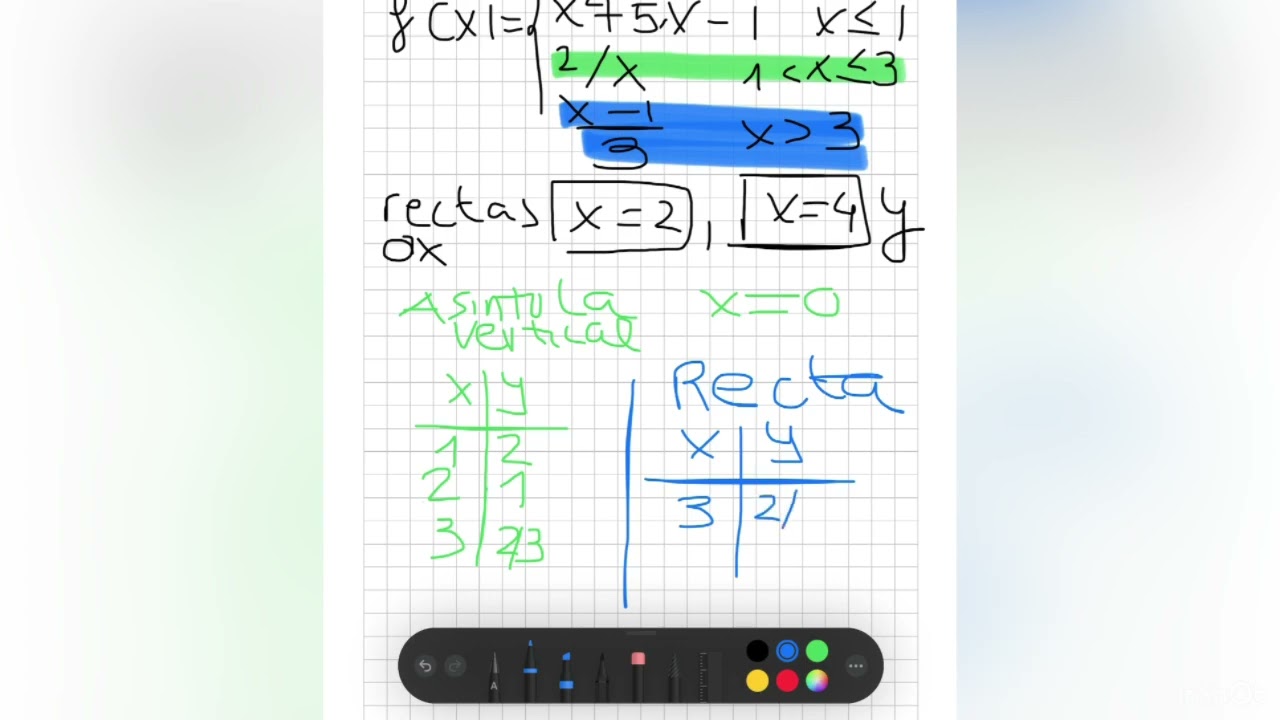 f(x)={ x²+5x-1 x≤1
2/x 1<x≤3
x-1
3 x>3
rectas x=2, x=4 y
OX
Asintota x=0
vertical
Recta
x y
1 2
2 1
3 2/3
x y
3 2/